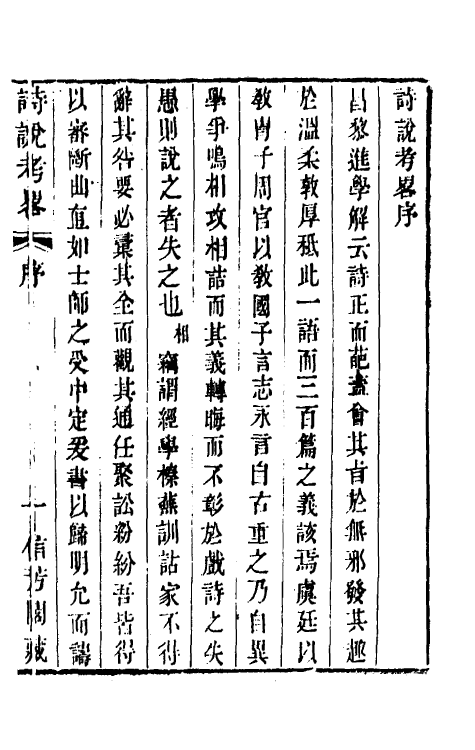 詩說考畧序
昌黎進學解云詩正而葩蓋會其旨於無邪發其趣
於溫柔敦厚秪此一語而三百篇之義該焉虞廷以
敎冑子周官以敎國子言志永言自古重之乃自異
學爭鳴相攻相詰而其義轉晦而不彰於戲詩之失
愚則說之者失之也相竊謂經學榛蕪訓詁家不得
辭其咎要必彙其全而觀其通任聚訟粉紛吾皆得
以審斷曲直如士師之受中定爰書以歸明允而讞
詩說考畧
序
一
信芳閣藏